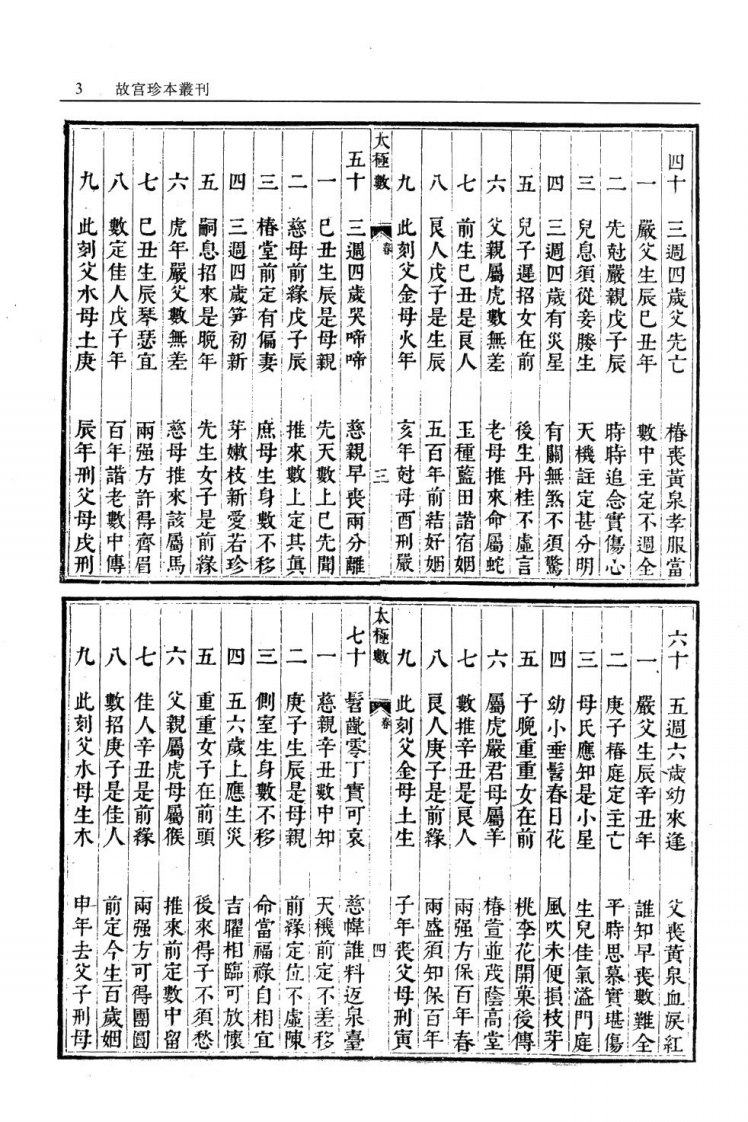 3 故宫珍本叢刊
四十 三週四歲父先亡 椿喪黃泉孝服當
一 嚴父生辰巳丑年 數中主定不週全
二 先尅嚴親戊子辰 時時追念實傷心
三 兒息須從妾媵生 天機註定甚分明
四 三週四歲有災星 有關無煞不須驚
五 兒子遲招女在前 後生丹桂不虛言
六 父親屬虎數無差 老母推來命屬蛇
七 前生巳丑是良人 玉種藍田諧宿姻
八 良人戊子是生辰 五百年前結好姻
九 此刻父金母火年 亥年尅母酉刑嚴
太極數 卷 三
五十 三週四歲哭啼啼 慈親早喪兩分離
一 巳丑生辰是母親 先天數上巳先聞
二 慈母前緣戊子辰 推來數上定其真
三 椿堂前定有偏妻 庶母生身數不移
四 三週四歲笋初新 芽嫩枝新愛若珍
五 嗣息招來是晚年 先生女子是前緣
六 虎年嚴父數無差 慈母推來該屬馬
七 巳丑生辰琴瑟宜 兩强方許得齊眉
八 數定佳人戊子年 百年諧老數中傳
九 此刻父水母土庚 辰年刑父母戌刑
六十 五週六歲幼來逢 父喪黃泉血淚紅
一 嚴父生辰辛丑年 誰知早喪數難全
二 庚子椿庭定主亡 平時思慕實堪傷
三 母氏應知是小星 生兒佳氣溢門庭
四 幼小垂髫春日花 風吹未便損枝芽
五 子晚重重女在前 桃李花開菓後傳
六 屬虎嚴君母屬羊 椿萱並茂蔭高堂
七 數推辛丑是良人 兩强方保百年春
八 良人庚子是前緣 兩盛須知保百年
九 此刻父金母土生 子年喪父母刑寅
太極數 卷 四
七十 髫齔零丁實可哀 慈幃誰料返泉臺
一 慈親辛丑數中知 天機前定不差移
二 庚子生辰是母親 前緣定位不虛陳
三 側室生身數不移 命當福祿自相宜
四 五六歲上應生災 吉曜相臨可放懷
五 重重女子在前頭 後來得子不須愁
六 父親屬虎母屬猴 推來前定數中留
七 佳人辛丑是前緣 兩强方可得團圓
八 數招庚子是佳人 前定今生百歲姻
九 此刻父水母生木 申年去父子刑母